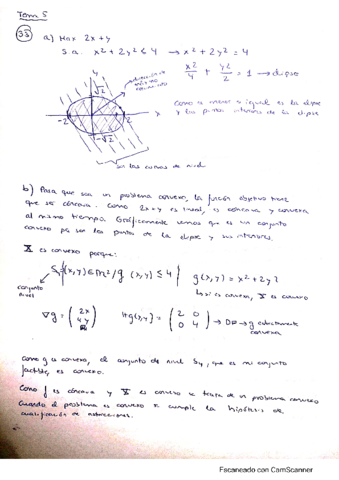 Tema 5
33) a) Max 2x + y
s.a. x² + 2y² ≤ 4 → x² + 2y² = 4
x²/4 + y²/2 = 1 → elipse
dirección de máximo crecimiento
y
√2
-2
2
x
-√2
Como es menor o igual es la elipse
y los puntos interiores de la elipse
son las curvas de nivel
b) Para que sea un problema convexo, la función objetivo tiene
que ser cóncava. Como 2x+y es lineal, es cóncava y convexa
al mismo tiempo. Gráficamente vemos que es un conjunto
convexo pq son los puntos de la elipse y sus interiores.
X es convexo porque:
S₄ {(x,y) ∈ M² / g(x,y) ≤ 4} g(x,y) = x² + 2y²
conjunto nivel
↳ si es convexa, X es convexo
∇g = (2x 4y) Hg(x,y) = (2 0 0 4) → DP → g estrictamente
convexa
Como g es convexa, el conjunto de nivel S₄, que es mi conjunto
factible, es convexo.
Como f es cóncava y X es convexo se trata de un problema convexo
Cuando el problema es convexo se cumple la hipótesis de
cualificación de restricciones.
Escaneado con CamScanner